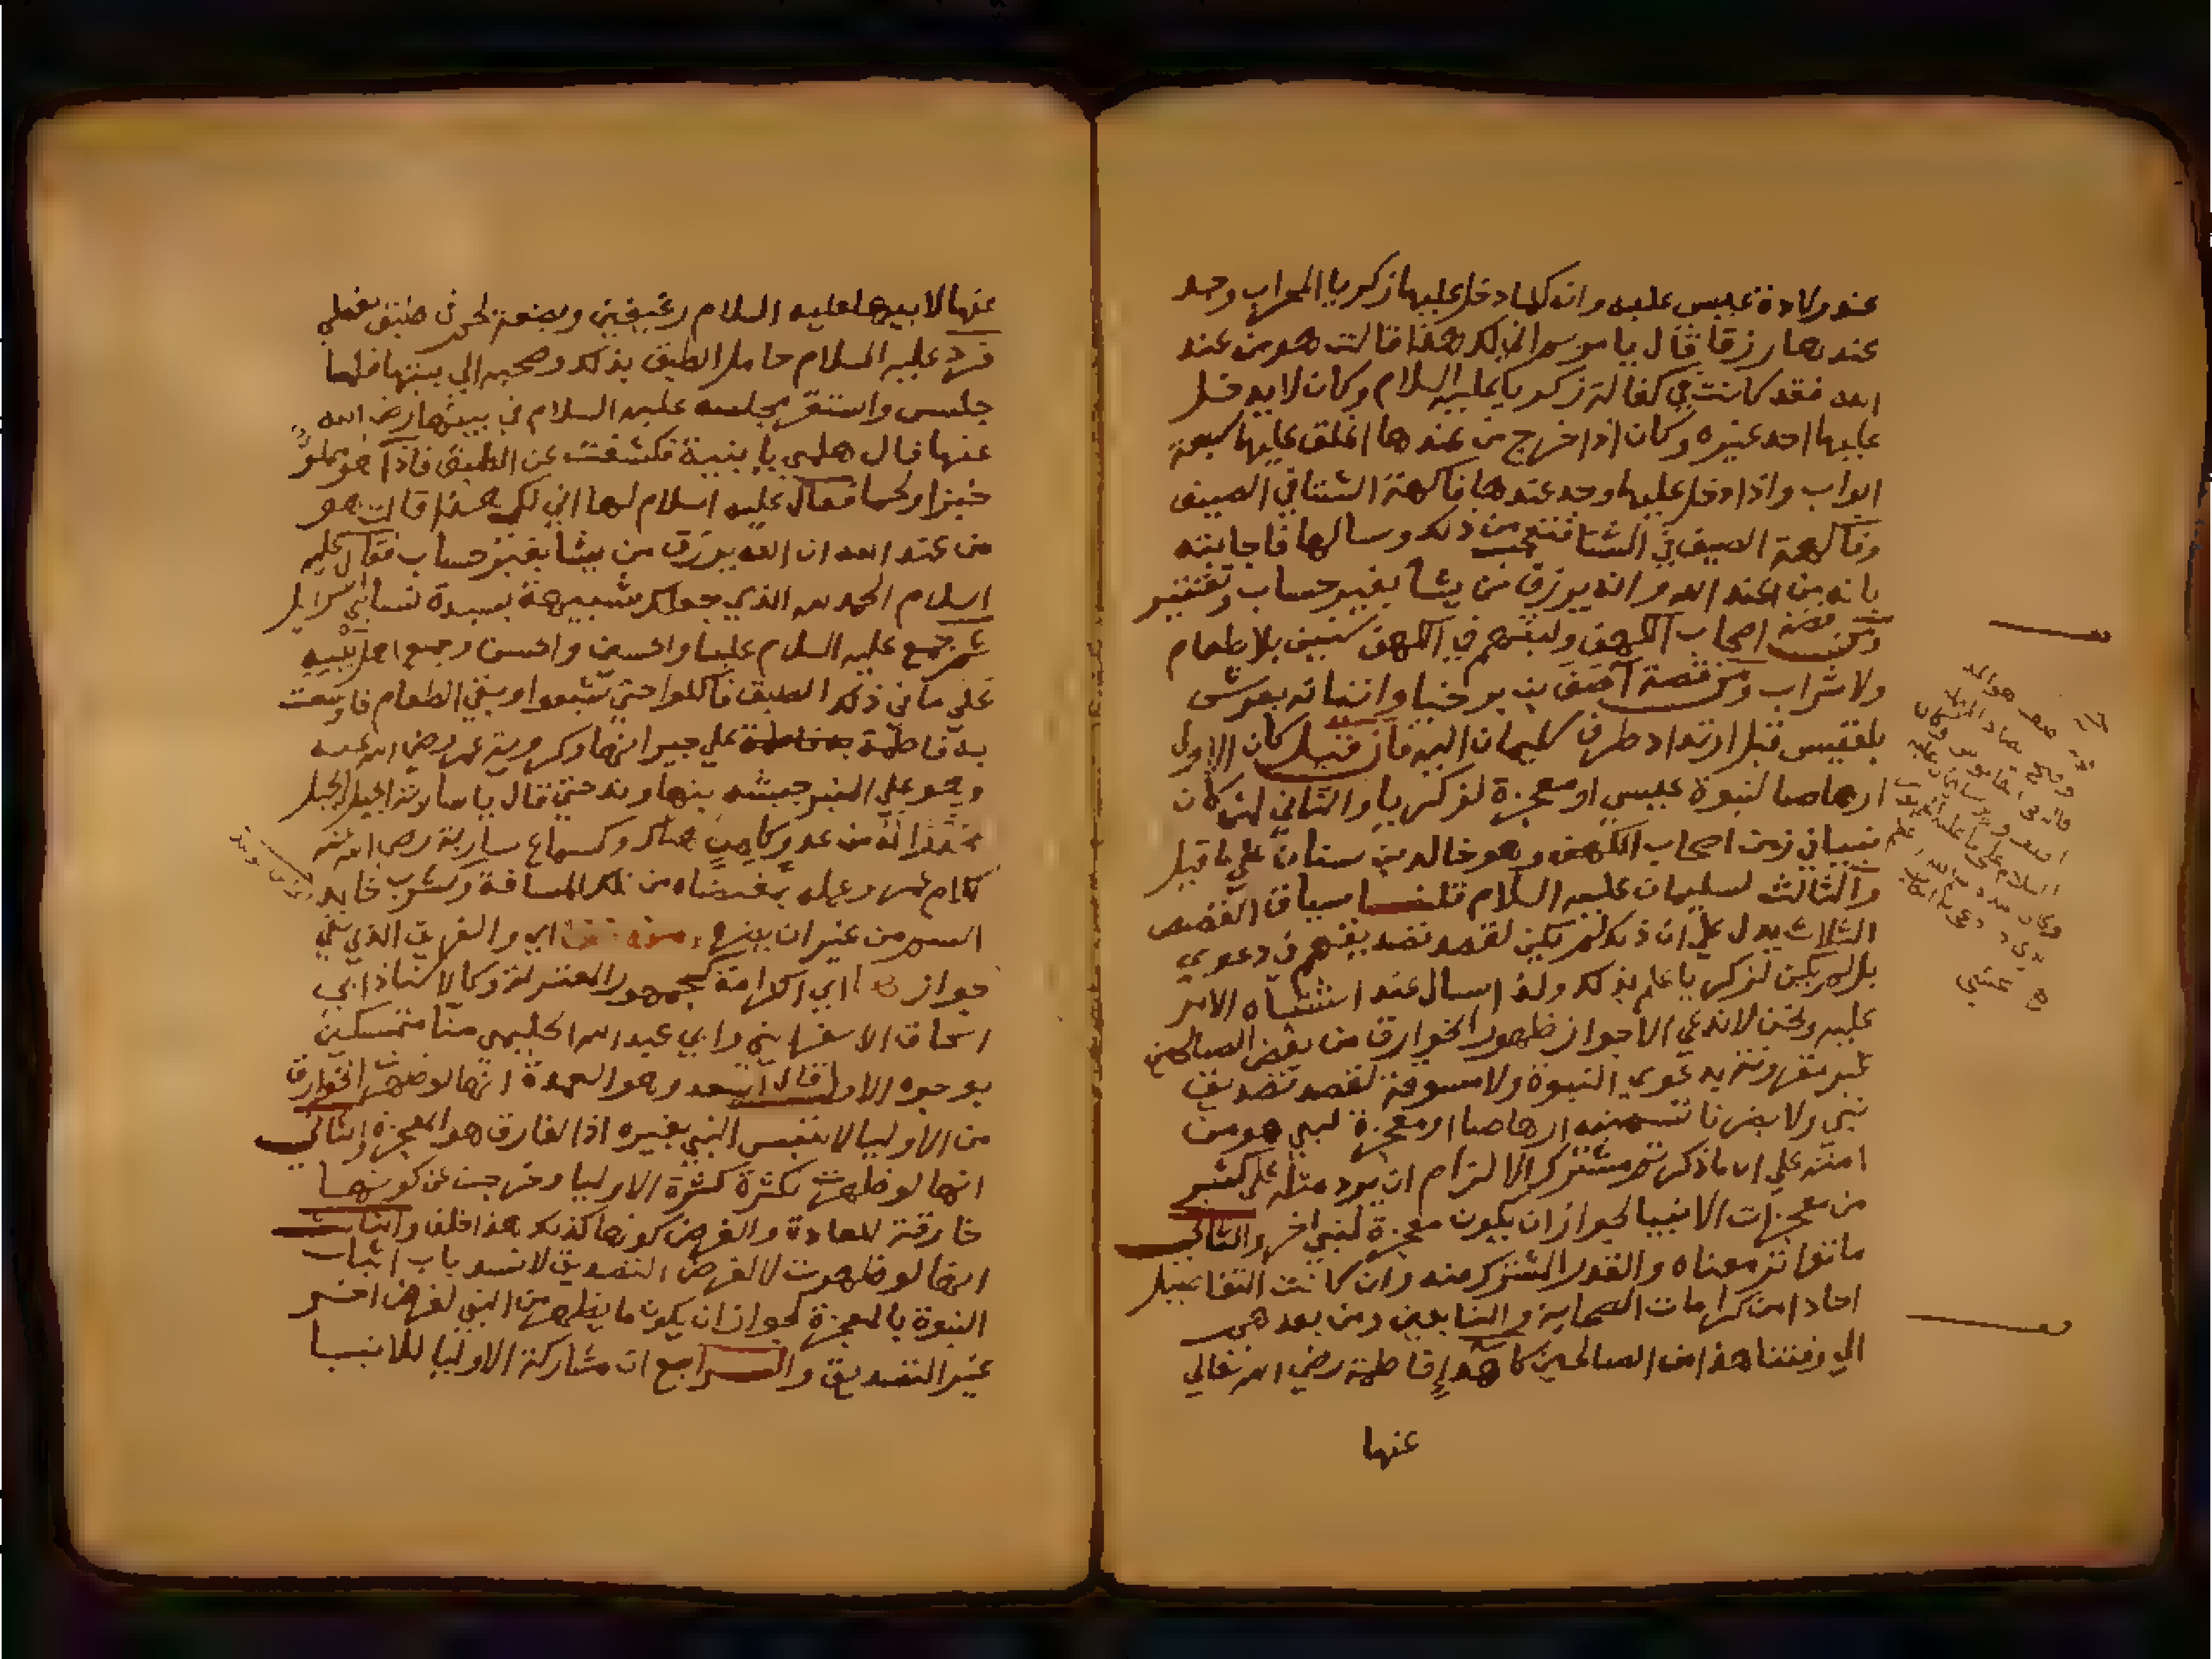 عند ولادة عيسي عليه وانه كلما دخل عليها زكريا المحراب وجد
عندها رزقا قال يا مريم اني لك هذا قالت هو من عند
الله فقد كانت في كفالة زكريا عليه السلام وكان لا يدخل
عليها احد غيره وكان اذا خرج من عندها اغلق عليها سبعة
ابواب واذا دخل عليها وجد عندها فاكهة الشتا في الصيف
وفاكهة الصيف في الشتا فتعجب من ذلك وسالها فاجابته
بانه من عند الله والله يرزق من يشا بغير حساب
ومن قصة اصحاب الكهف ولبثهم في الكهف سنين بلا طعام
ولا شراب ومن قصة آصف بن برخيا واتيانه بعرش
بلقيس قبل ارتداد طرف سليمان اليه فان قيل كان الاول
ارهاصا لنبوة عيسي او معجزة لزكريا والثاني لمن كان
نبيا في زمن اصحاب الكهف وهو خالد بن سنان علي ما قيل
والثالث لسليمان عليه السلام قلنا سياق القصص
الثلاث يدل علي ان ذلك لم يكن لقصد تصديقهم في دعوي
بل لم يكن لزكريا علم بذلك ولذا سال عند اشتباه الامر
عليه ونحن لا ندعي الا جواز ظهور الخوارق من بعض الصالحين
غير مقرونة بدعوي النبوة ولا مسوقة لقصد تصديق
نبي ولا يضرنا تسميته ارهاصا او معجزة لنبي هو من
امته علي ان ما ذكرتم مشترك الالتزام ان يرد مثله علي كثير
من معجزات الانبيا لجواز ان يكون معجزة لنبي اخر والثاني
ما تواتر معناه والقدر المشترك منه وان كانت التفاصيل
احادا من كرامات الصحابة والتابعين ومن بعدهم
الي وقتنا هذا من الصالحين فاطمة رضي الله تعالي
عنها
عنها لابيها عليه السلام رغيفين وبضعة لحم في طبق مغطي
فرد عليه السلام حاملا الطبق بذلك وصحبه الي بيتها فلما
جلس واستقر مجلسه عليه السلام في بيتها رضي الله
عنها قال هلمي يا بنية فكشفت عن الطبق فاذا هو مملو
خبزا ولحما فقال عليه السلام لها اني لك هذا قالت هو
من عند الله ان الله يرزق من يشا بغير حساب فقال عليه
السلام الحمد لله الذي جعلك شبيهة بسيدة نسا بني اسرايل
ثم جمع عليه السلام عليا والحسن والحسين وجميع اهل بيته
علي ما في ذلك الطبق فاكلوا حتي شبعوا وبقي الطعام فاوسعت
به فاطمة علي جيرانها وكروية عمر رضي الله عنه
وهو علي المنبر جيشه بنهاوند حتي قال يا سارية الجبل الجبل
تحذيرا له من عدو كامن هناك وكسماع سارية رضي الله عنه
كلام عمر وعمله بمقتضاه من تلك المسافة وشرب خالد
السم من غير ان يضره اي والفريق الذي نفي
جواز اي الكرامة كجمهور المعتزلة وكالاستاذ ابي
اسحاق الاسفرايني وابي عبد الله الحليمي منا متمسكين
بوجوه الاول قال السعد وهو العمدة انها لو ظهرت الخوارق
من الاوليا لالتبس النبي بغيره اذ الفارق هو المعجزة والثاني
انها لو ظهرت بكثرة كثرة الاوليا وخرجت عن كونها
خارقة للعادة والفرض كونها كذلك هذا خلف والثالث
انها لو ظهرت لا لغرض التصديق لانسد باب اثبات
النبوة بالمعجزة لجواز ان يكون ما يظهر من النبي لغرض اخر
غير التصديق والرابع ان مشاركة الاوليا للانبيا